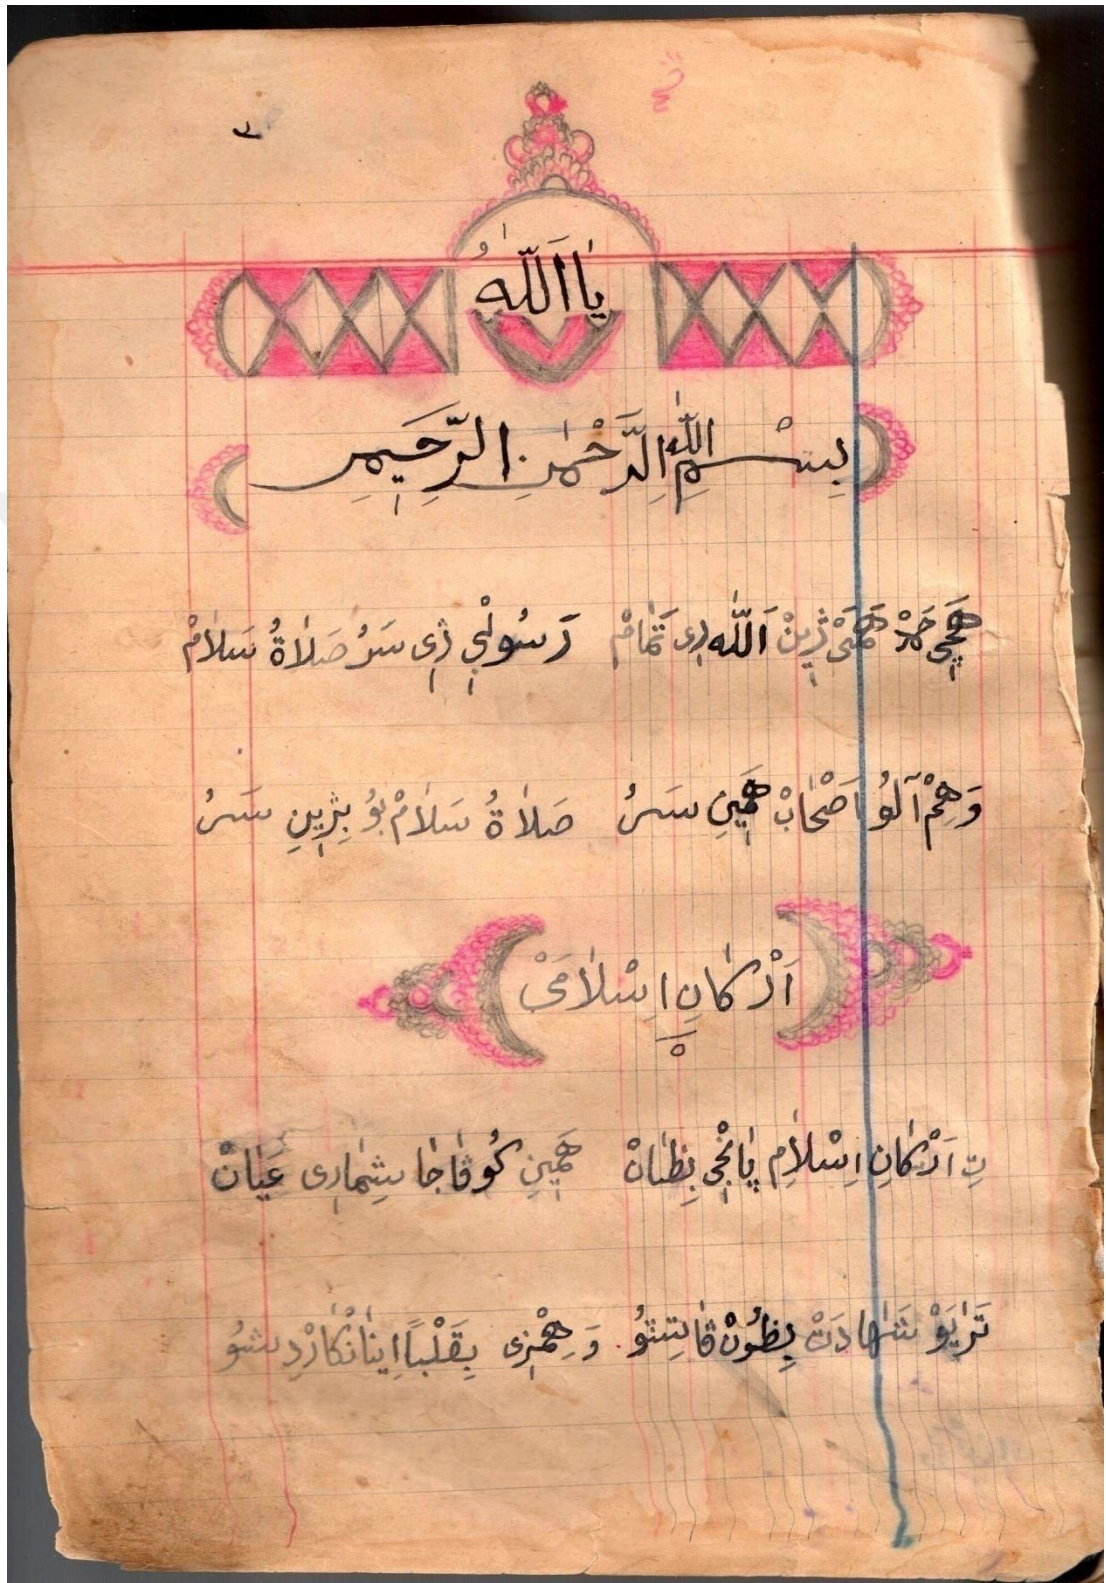 يَا اَللّٰهُ
بِسْمِ اللّٰهِ الرَّحْمٰنِ الرَّحِيمِ
هَچِی حَمْدْ هَمَیْ ژِینْ اَللّٰه رِی تَمَامْ رَسُولْچِی رِی سَرُ صَلَاةُ سَلَامْ
وَهِمْ آلُو اَصْحَابْ هَمِینِ سَرُ صَلَاةُ سَلَامْ بُو بِژِینِ سَرُ
اَرْكَانِ اِسْلَامَیْ
تِ اَرْكَانِ اِسْلَامِ پَانْجِی بِظَانْ هَمِینِ كُو ڤَاجَا بِشِمَارِی عَيَانْ
شَهَادَتْ بِظُونْ ڤَاتِتُو وَهِمْژِی بِقَلْبًا